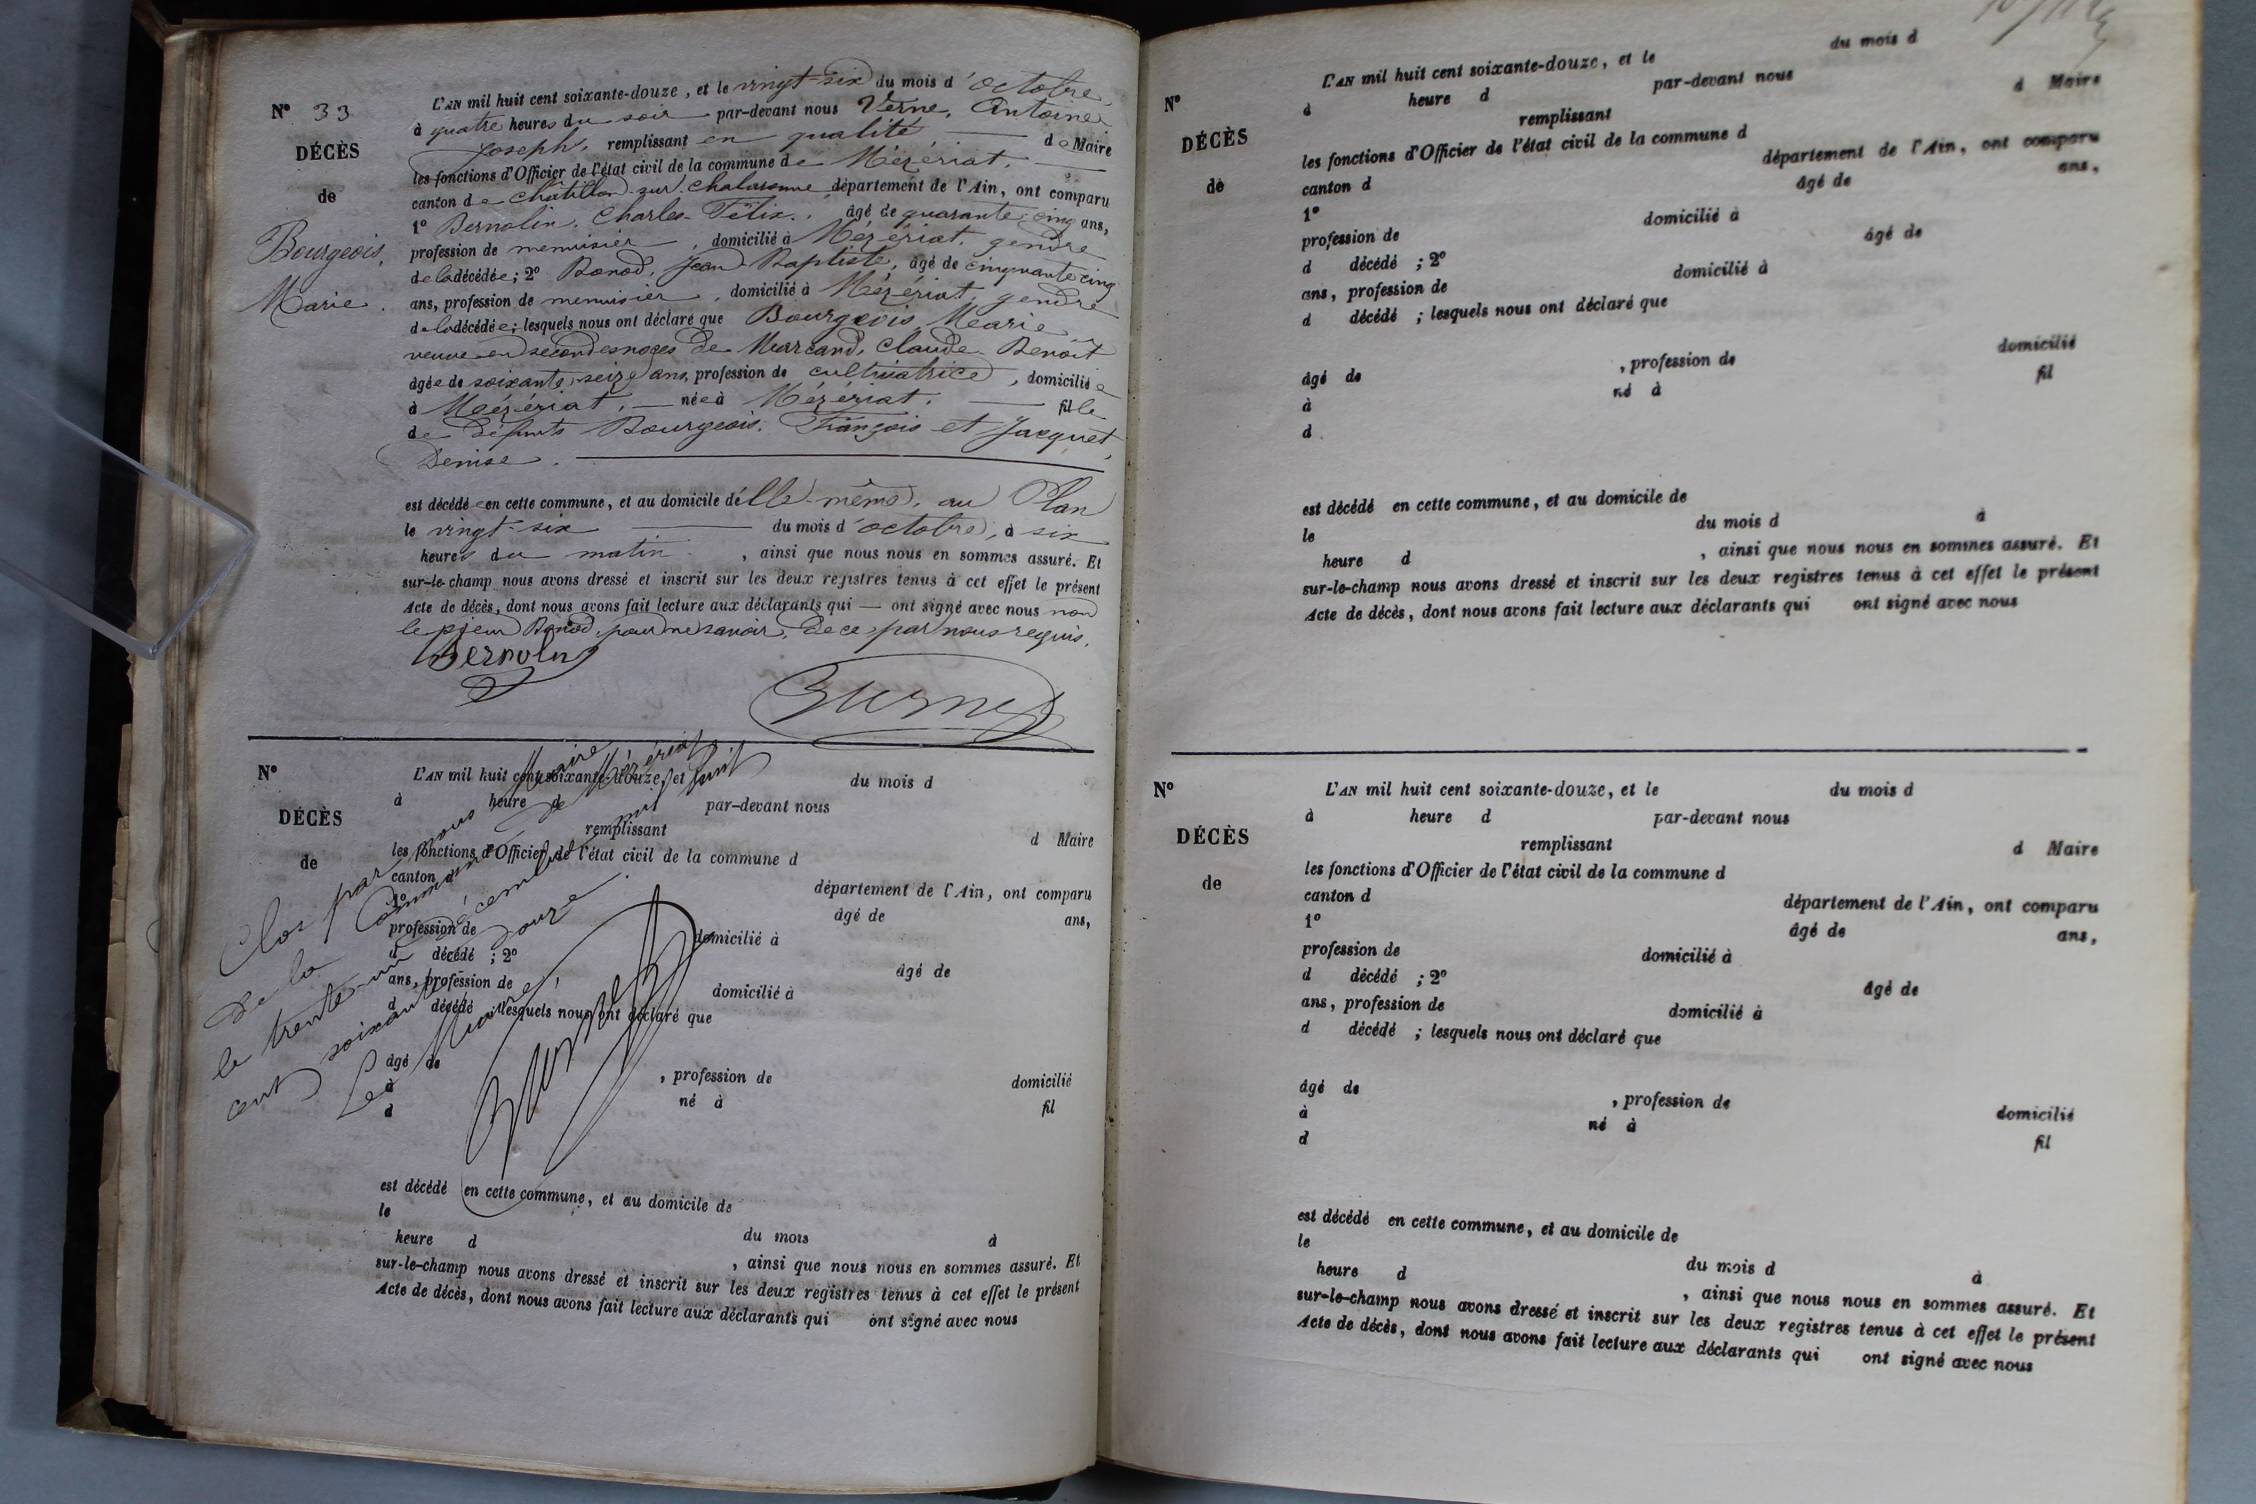 N° 33
DÉCÈS
de
Bourgeois,
Marie.
L'AN mil huit cent soixante-douze, et le vingt-six du mois d'octobre,
à quatre heures du soir par-devant nous Verne, Antoine
Joseph, remplissant en qualité de Maire
les fonctions d'Officier de l'état civil de la commune de Mézériat,
canton de Châtillon-sur-Chalaronne département de l'Ain, ont comparu
1° Bernolin, Charles-Félix, âgé de quarante-cinq ans,
profession de menuisier, domicilié à Mézériat, gendre
de la décédée; 2° Bonod, Jean Baptiste, âgé de cinquante cinq
ans, profession de menuisier, domicilié à Mézériat, gendre
de la décédée; lesquels nous ont déclaré que Bourgeois, Marie
veuve en secondes noces de Marcand, Claude-Benoît
âgée de soixante-seize ans, profession de cultivatrice, domiciliée
à Mézériat, née à Mézériat, fille
de défunts Bourgeois, François et Jacquet,
Denise.
est décédée en cette commune, et au domicile d'elle-même, au Plan
le vingt-six du mois d'octobre, à six
heures du matin, ainsi que nous nous en sommes assuré. Et
sur-le-champ nous avons dressé et inscrit sur les deux registres tenus à cet effet le présent
Acte de décès, dont nous avons fait lecture aux déclarants qui — ont signé avec nous non
le sieur Bonod, pour ne savoir, de ce par nous requis.
Bernolin
Verne
N°
DÉCÈS
de
L'AN mil huit cent soixante-douze, et le du mois d
à heure d par-devant nous
remplissant d Maire
les fonctions d'Officier de l'état civil de la commune d
canton d département de l'Ain, ont comparu
1° âgé de ans,
profession de domicilié à
d décédé ; 2° âgé de
ans, profession de domicilié à
d décédé ; lesquels nous ont déclaré que
âgé de , profession de domicilié
à né à fil
d
est décédé en cette commune, et au domicile de
le du mois à
heure d , ainsi que nous nous en sommes assuré. Et
sur-le-champ nous avons dressé et inscrit sur les deux registres tenus à cet effet le présent
Acte de décès, dont nous avons fait lecture aux déclarants qui ont signé avec nous
Clos par nous Maire
de la Commune de Mézériat
le trente-un décembre mil huit
cent soixante douze.
Le Maire,
Verne
N°
DÉCÈS
de
L'AN mil huit cent soixante-douze, et le du mois d
à heure d par-devant nous
remplissant d Maire
les fonctions d'Officier de l'état civil de la commune d
canton d département de l'Ain, ont comparu
1° âgé de ans,
profession de domicilié à
d décédé ; 2° âgé de
ans, profession de domicilié à
d décédé ; lesquels nous ont déclaré que
âgé de , profession de domicilié
à né à fil
d
est décédé en cette commune, et au domicile de
le du mois d à
heure d , ainsi que nous nous en sommes assuré. Et
sur-le-champ nous avons dressé et inscrit sur les deux registres tenus à cet effet le présent
Acte de décès, dont nous avons fait lecture aux déclarants qui ont signé avec nous
N°
DÉCÈS
de
L'AN mil huit cent soixante-douze, et le du mois d
à heure d par-devant nous
remplissant d Maire
les fonctions d'Officier de l'état civil de la commune d
canton d département de l'Ain, ont comparu
1° âgé de ans,
profession de domicilié à
d décédé ; 2° âgé de
ans, profession de domicilié à
d décédé ; lesquels nous ont déclaré que
âgé de , profession de domicilié
à né à fil
d
est décédé en cette commune, et au domicile de
le du mois d à
heure d , ainsi que nous nous en sommes assuré. Et
sur-le-champ nous avons dressé et inscrit sur les deux registres tenus à cet effet le présent
Acte de décès, dont nous avons fait lecture aux déclarants qui ont signé avec nous